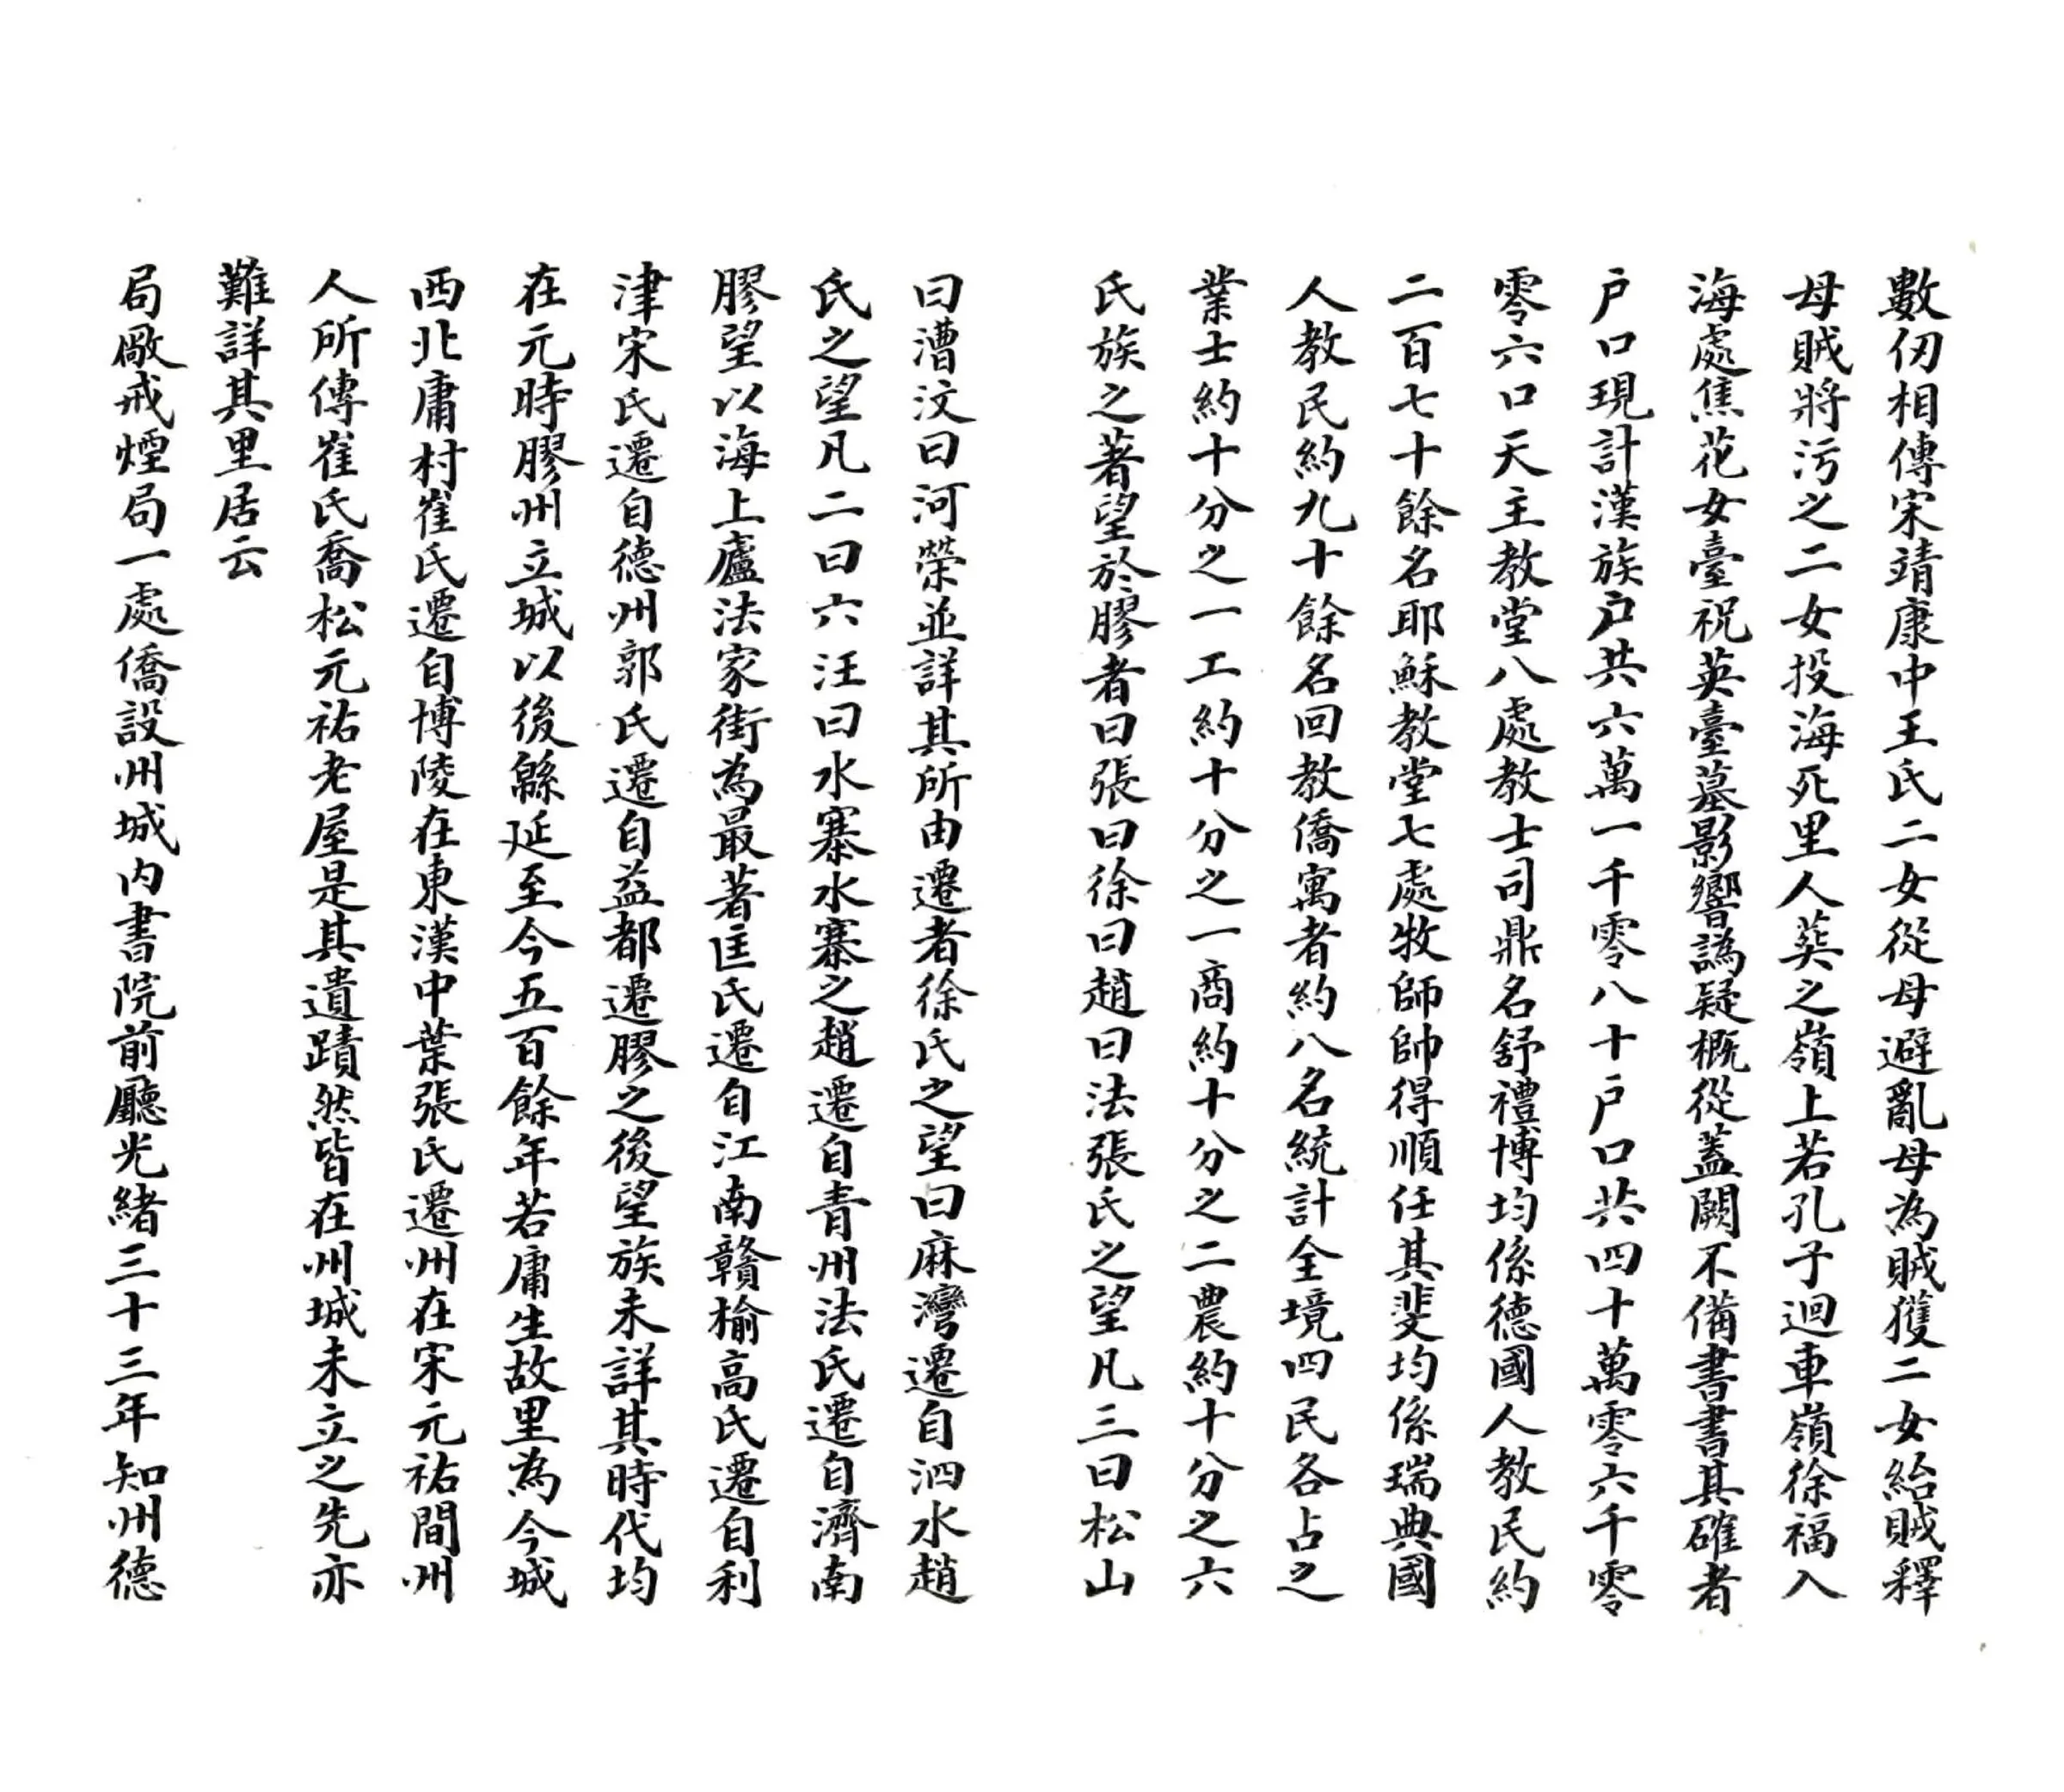 數仞相傳宋靖康中王氏二女從母避亂母為賊獲二女紿賊釋
母賊將污之二女投海死里人葬之嶺上若孔子迴車嶺徐福入
海處焦花女臺祝英臺墓影響譌疑概從蓋闕不備書書其確者
戶口現計漢族戶共六萬一千零八十戶口共四十萬零六千零
零六口天主教堂八處教士司鼎名舒禮博均係德國人教民約
二百七十餘名耶穌教堂七處牧師帥得順任其斐均係瑞典國
人教民約九十餘名回教僑寓者約八名統計全境四民各占之
業士約十分之一工約十分之一商約十分之二農約十分之六
氏族之著望於膠者曰張曰徐曰趙曰法張氏之望凡三曰松山
曰漕汶曰河榮並詳其所由遷者徐氏之望曰麻灣遷自泗水趙
氏之望凡二曰六汪曰水寨水寨之趙遷自青州法氏遷自濟南
膠望以海上廬法家街為最著匡氏遷自江南贛榆高氏遷自利
津宋氏遷自德州郭氏遷自益都遷膠之後望族未詳其時代均
在元時膠州立城以後緜延至今五百餘年若庸生故里為今城
西北庸村崔氏遷自博陵在東漢中葉張氏遷州在宋元祐間州
人所傳崔氏喬松元祐老屋是其遺蹟然皆在州城未立之先亦
難詳其里居云
局厰戒煙局一處僑設州城內書院前廳光緒三十三年知州德